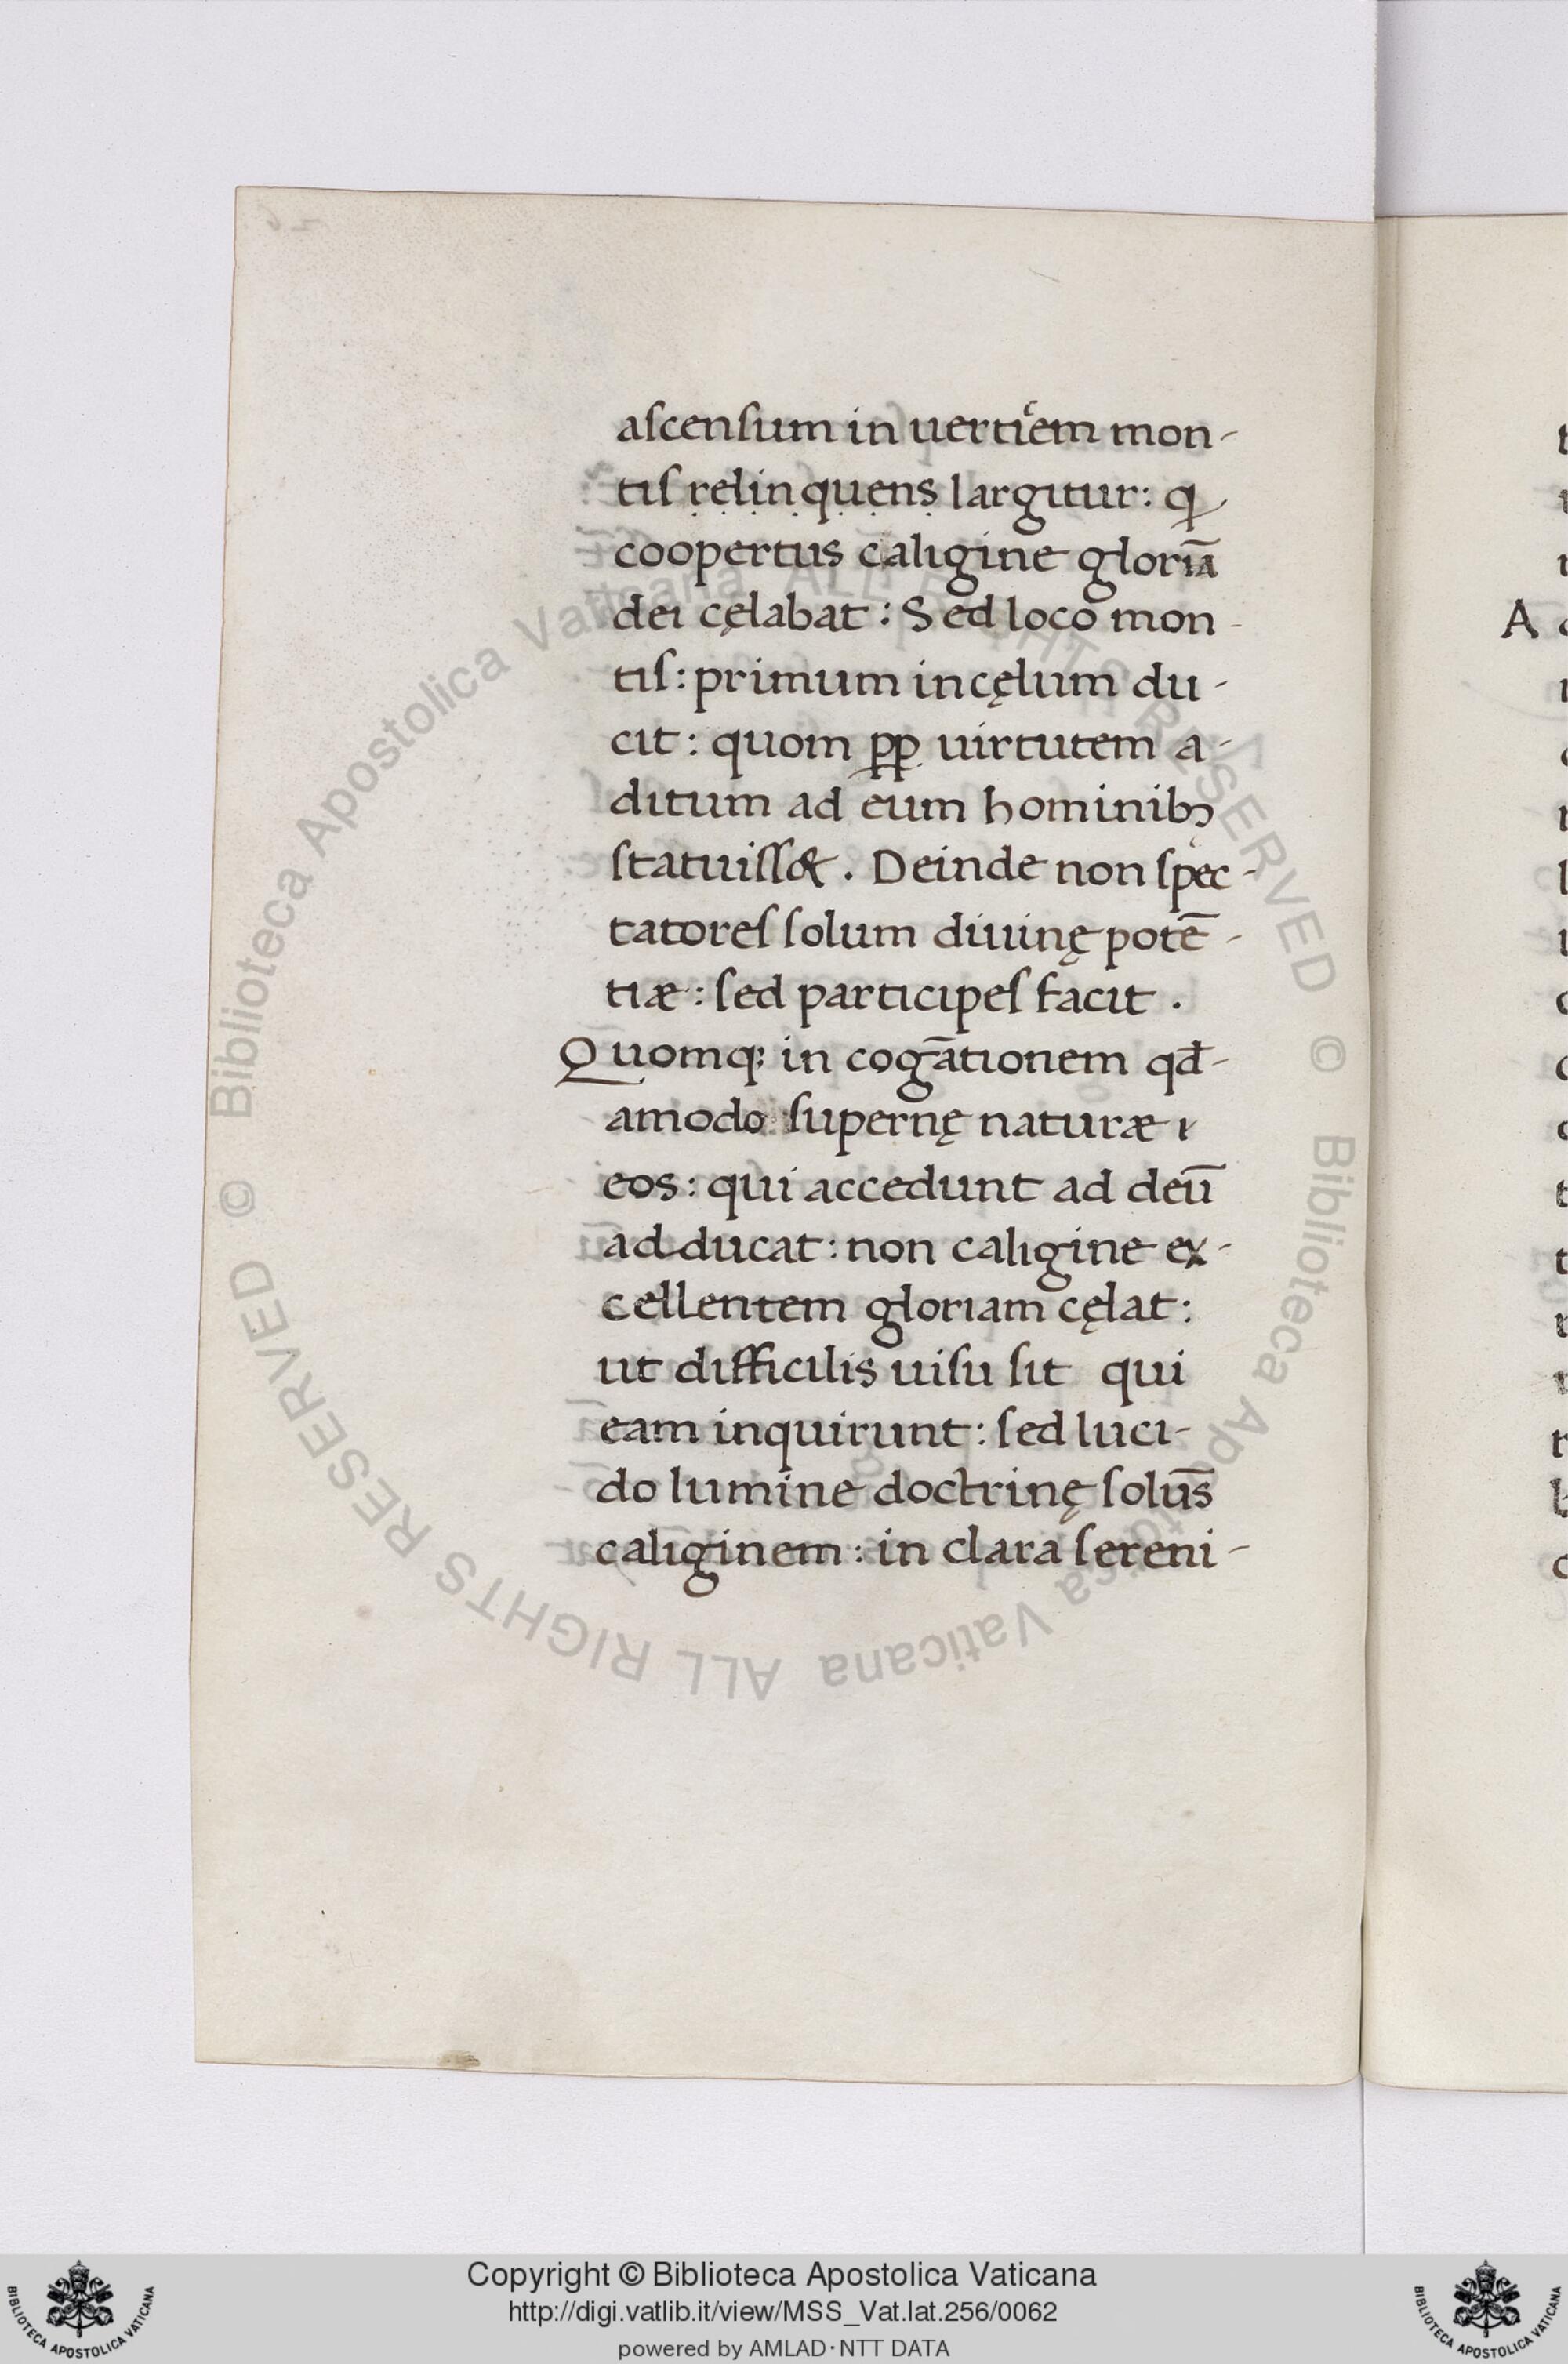 aſcenſum in uertic̃em mon-
tiſ relinquens largitur: ꝙ
coopertus caligine gloriā
dei cęlabat: Sed loco mon-
tiſ: primum in cęlum du-
cit: quom ꝓp uirtutem a-
ditum ad eum hominibꝫ
ſtatuiſſ&. Deinde non ſpec-
tatoreſ ſolum diuinę potē-
tiæ: ſed participeſ facit.
Quomqꝫ in cogātionem qđ-
amodo ſupernę naturæ ı
eos: qui accedunt ad deū
adducat: non caligine ex-
cellentem gloriam cęlat:
ut difficilis uiſu ſit qui
eam inquirunt: ſed luci-
do lumine doctrinę ſolūs
caliginem: in clara ſereni-
A
© Biblioteca Apostolica Vaticana ALL RIGHTS RESERVED
© Biblioteca Apostolica Vaticana ALL RIGHTS RESERVED
Copyright © Biblioteca Apostolica Vaticana
http://digi.vatlib.it/view/MSS_Vat.lat.256/0062
powered by AMLAD·NTT DATA
BIBLIOTECA APOSTOLICA VATICANA
BIBLIOTECA APOSTOLICA VATICANA